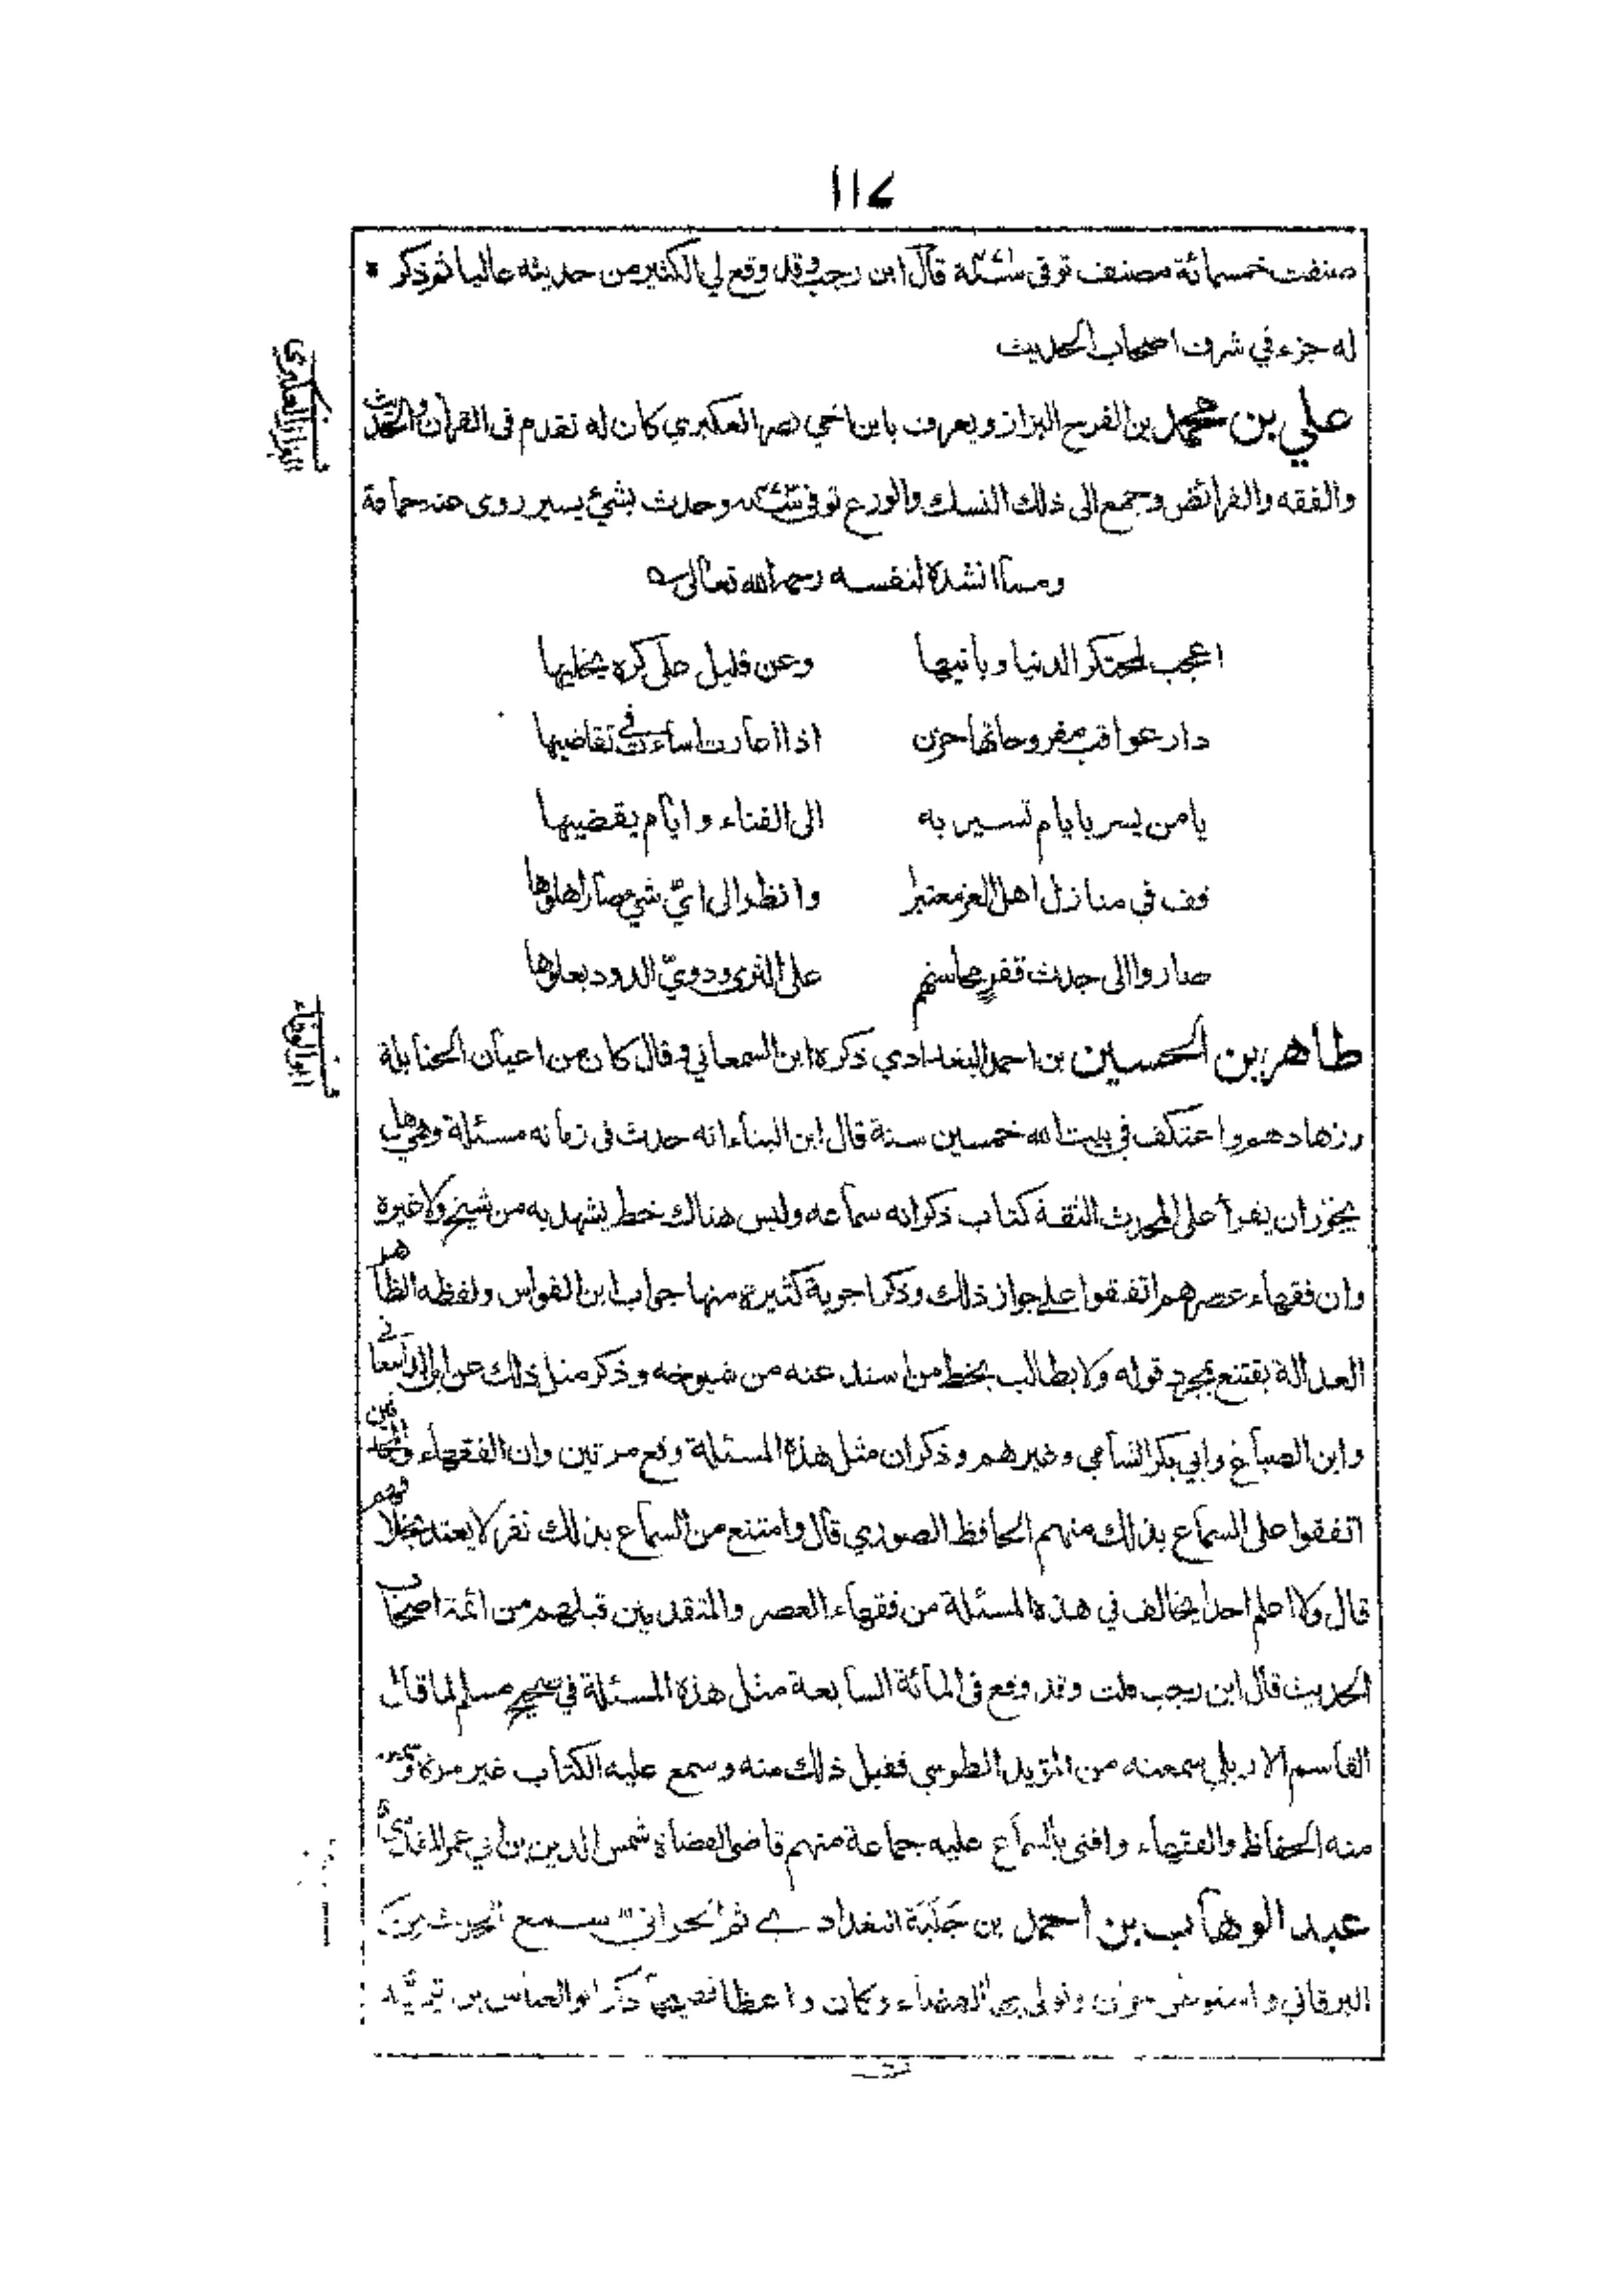 ١١٧
صنفت خمسمائة مصنف توفي سنة قال ابن رجب وقد وقع لي الكثير من حديثه عاليا ثم ذكر *
له جزء في شرف اصحاب الحديث
علي بن محمد بن الفرج البزاز ويعرف بابن اخي نصر العكبري كان له تقدم في القران والحديث
والفقه والفرائض وجمع الى ذلك النسك والورع توفي وحدث بشئ يسير روى عنه جماعة
ومما انشده لنفسه رحمه الله تعالى
اعجب لمحتكر الدنيا وبانيها وعن قليل على كره يخليها
دار عواقب مفروحاتها حزن اذا اعارت اساءت في تقاضيها
يا من يسر بايام تسير به الى الفناء وايام يقضيها
قف في منازل اهل العز معتبرا وانظر الى ايّ شيء صار اهلوها
صاروا الى جدث قفر محاسنهم على الثرى ودويّ الدود يعلوها
طاهر بن الحسين بن احمد البغدادي ذكره ابن السمعاني وقال كان من اعيان الحنابلة
وزهادهم واعتكف في بيت الله خمسين سنة قال ابن البناء انه حدث في زمانه مسئلة وهي هل
يجوز ان يقرأ على المحدث الثقة كتاب ذكر انه سماعه وليس هناك خط يشهد به من شيخ ولا غيره
وان فقهاء عصرهم اتفقوا على جواز ذلك وذكر اجوبة كثيرة منها جواب ابن القواس ولفظه الظاهر
العدالة يقتنع بمجرد قوله ولا يطالب بخط من اسند عنه من شيوخه وذكر مثل ذلك عن
وابن الصباغ وابي بكر الشامي وغيرهم وذكر ان مثل هذه المسئلة وقع مرتين وان الفقهاء والمحدثين
اتفقوا على السماع بذلك منهم الحافظ الصوري قال وامتنع من السماع بذلك نفر لا يعتد بخلافهم
قال ولا اعلم احدا يخالف في هذه المسئلة من فقهاء العصر والمتقدمين قبلهم من ائمة اصحاب
الحديث قال ابن رجب قلت وقد وقع في المائة السابعة مثل هذه المسئلة في صحيح مسلم لما قال
القاسم الاربلي سمعته من المؤيد الطوسي فقبل ذلك منه وسمع عليه الكتاب غير مرة
منه الحفاظ والفقهاء وافتى بالسماع عليه جماعة منهم قاضي القضاة شمس الدين بن ابي عمر المقدسي
عبد الوهاب بن احمد بن جَلَبَة البغدادي ثم الحراني سمع الحديث من
البرقاني و وتولى بها القضاء وكان واعظا فصيحا ذكر ابو العباس بن تيميّة
البزاز العكبري
ابو الوفاء